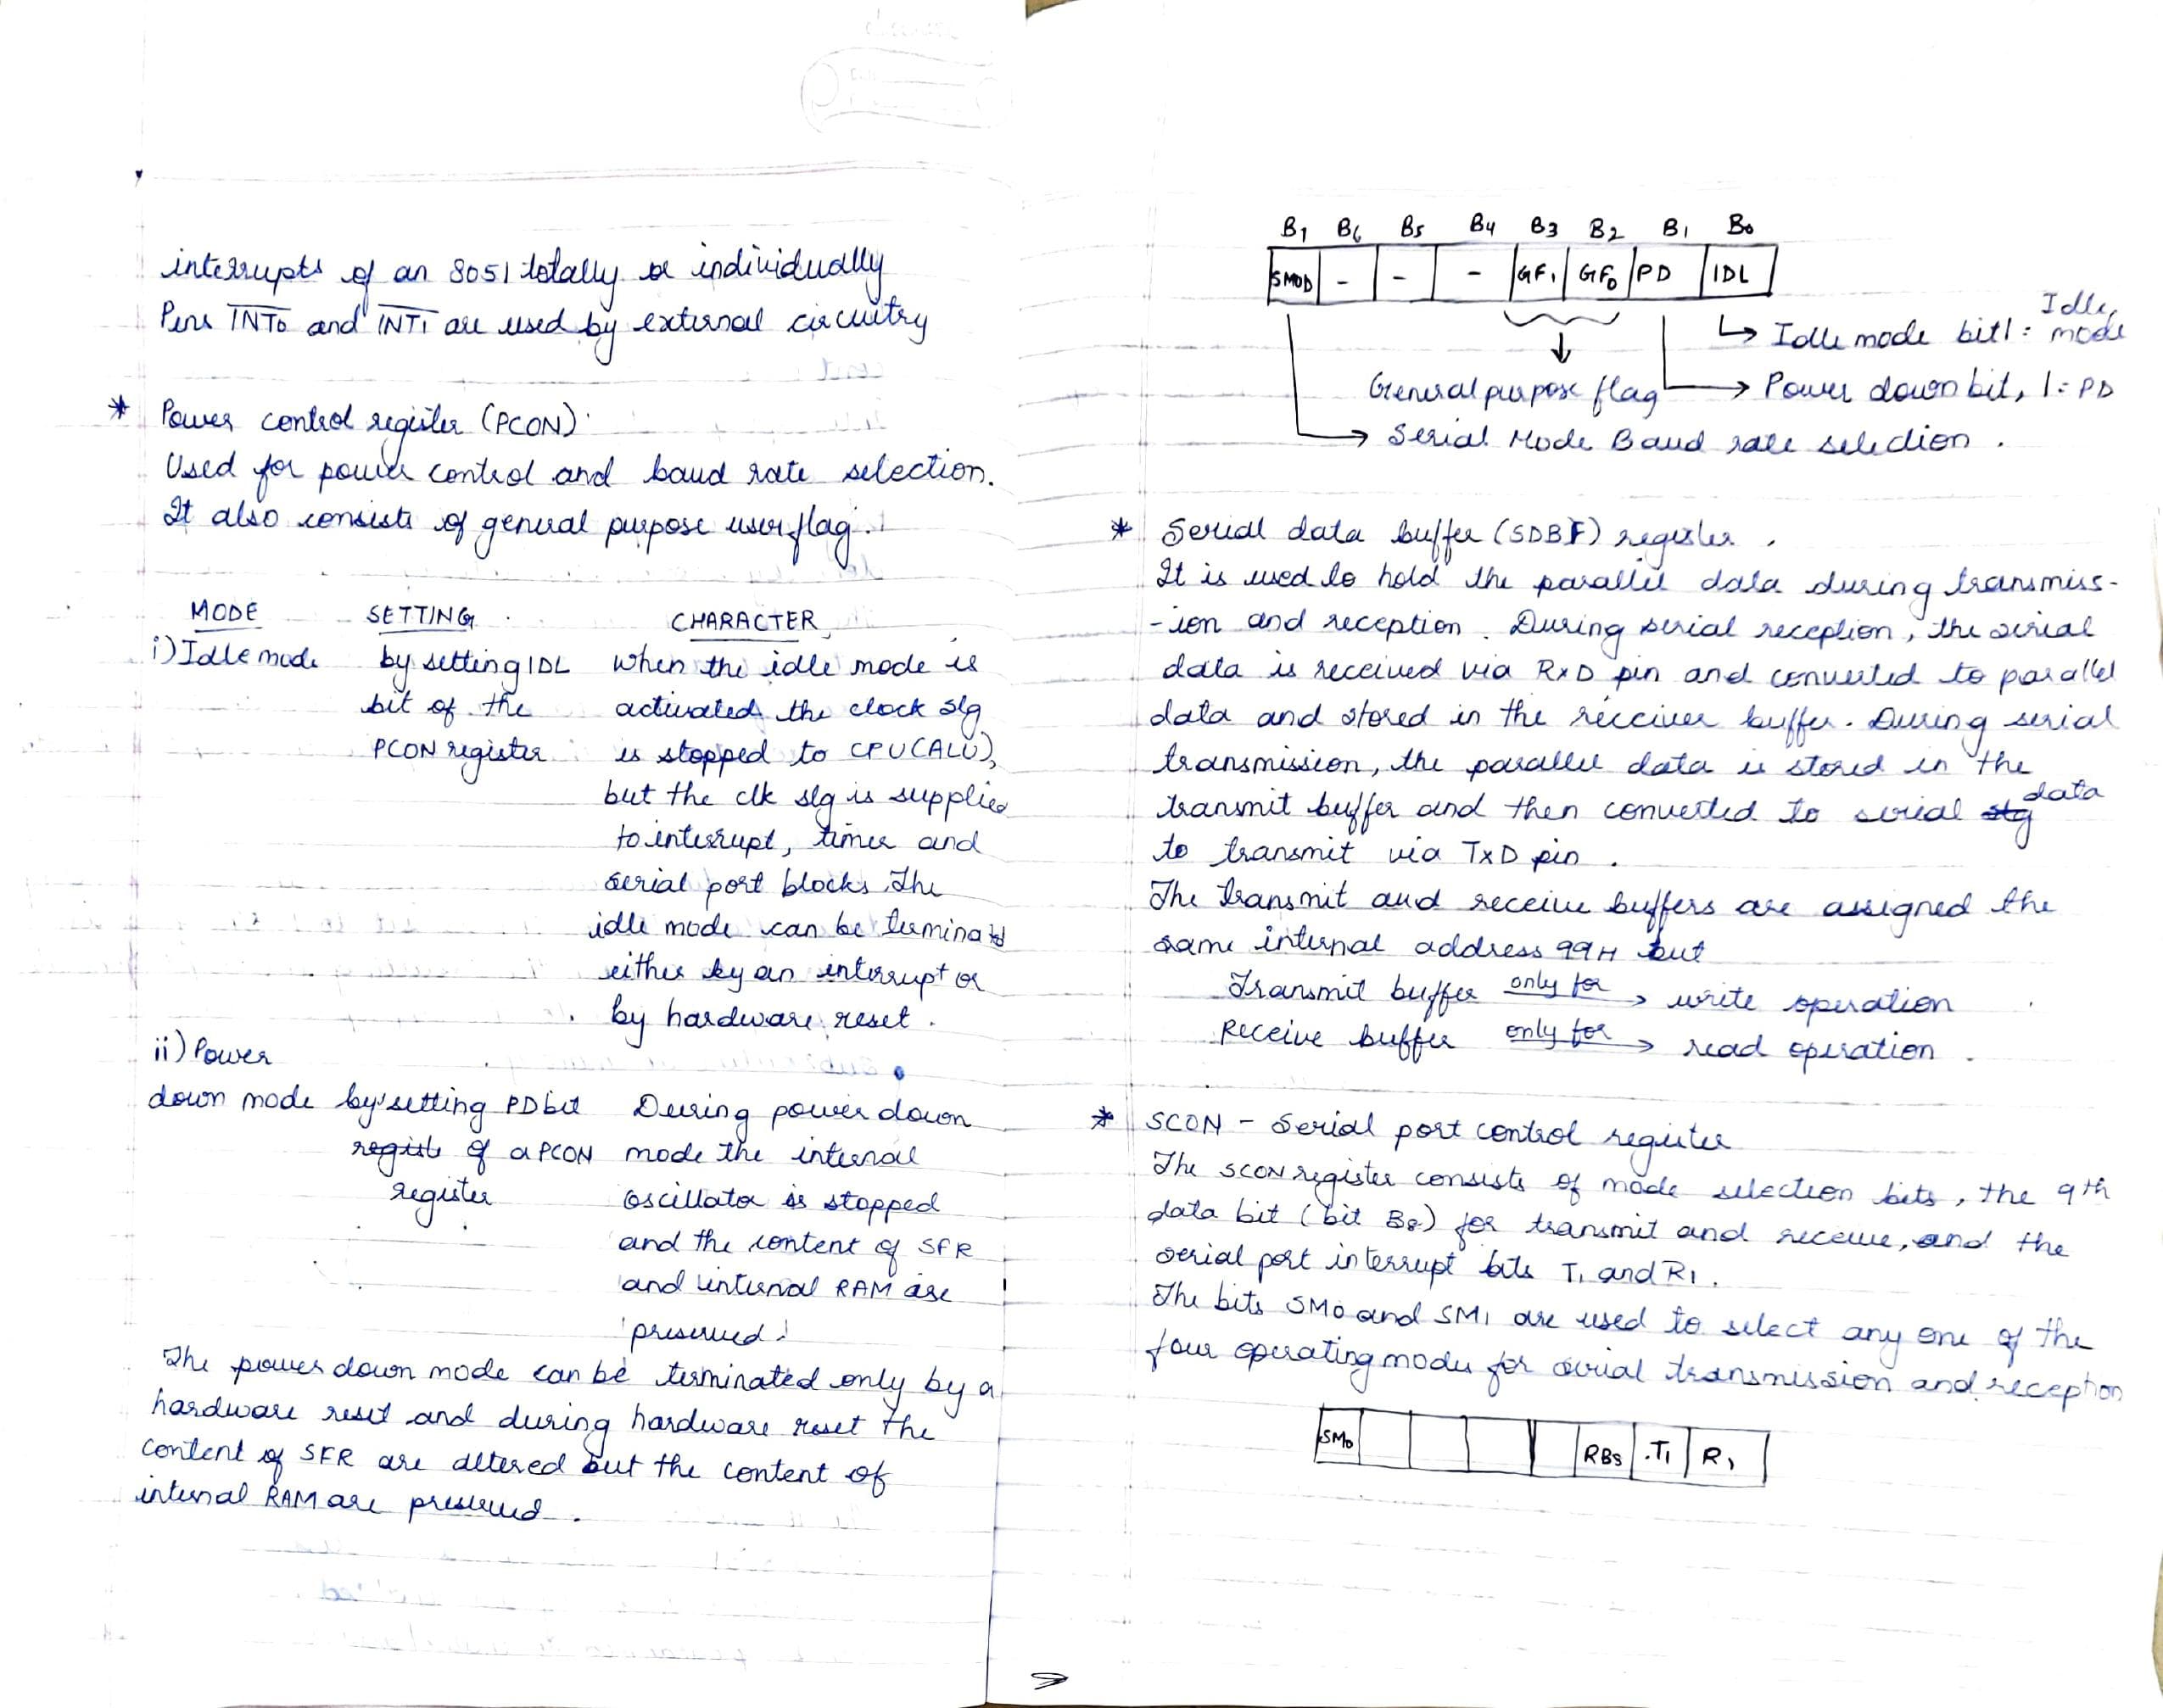 interrupts of an 8051 totally or individually
Pins INT0 and INT1 are used by external circuitry
* Power control register (PCON)
Used for power control and baud rate selection.
It also consists of general purpose user flag.
MODE SETTING CHARACTER
i) Idle mode by setting IDL when the idle mode is
bit of the activated the clock slg
PCON register is stopped to CPU (ALU),
but the clk slg is supplied
to interrupt, timer and
serial port blocks. The
idle mode can be terminated
either by an interrupt or
by hardware reset.
ii) Power
down mode by setting PD bit During power down
of a PCON mode the internal
register oscillator is stopped
and the content of SFR
and internal RAM are
preserved.
The power down mode can be terminated only by a
hardware reset and during hardware reset the
content of SFR are altered but the content of
internal RAM are preserved.
B7 B6 B5 B4 B3 B2 B1 B0
SMOD - - - GF1 GF0 PD IDL
Idle
→ Idle mode bit 1 = mode
General purpose flag → Power down bit, 1 = PD
→ Serial Mode Baud rate selection.
* Serial data buffer (SDBF) register.
It is used to hold the parallel data during transmiss-
-ion and reception. During serial reception, the serial
data is received via RxD pin and converted to parallel
data and stored in the reciever buffer. During serial
transmission, the parallel data is stored in the
transmit buffer and then converted to serial data
to transmit via TxD pin.
The transmit and receive buffers are assigned the
same internal address 99H but
Transmit buffer only for → write operation
Receive buffer only for → read operation.
* SCON - Serial port control register
The SCON register consists of mode selection bits, the 9th
data bit (bit B8) for transmit and receive, and the
serial port interrupt bits T1 and R1.
The bits SM0 and SM1 are used to select any one of the
four operating modes for serial transmission and reception
SM0 RB8 T1 R1